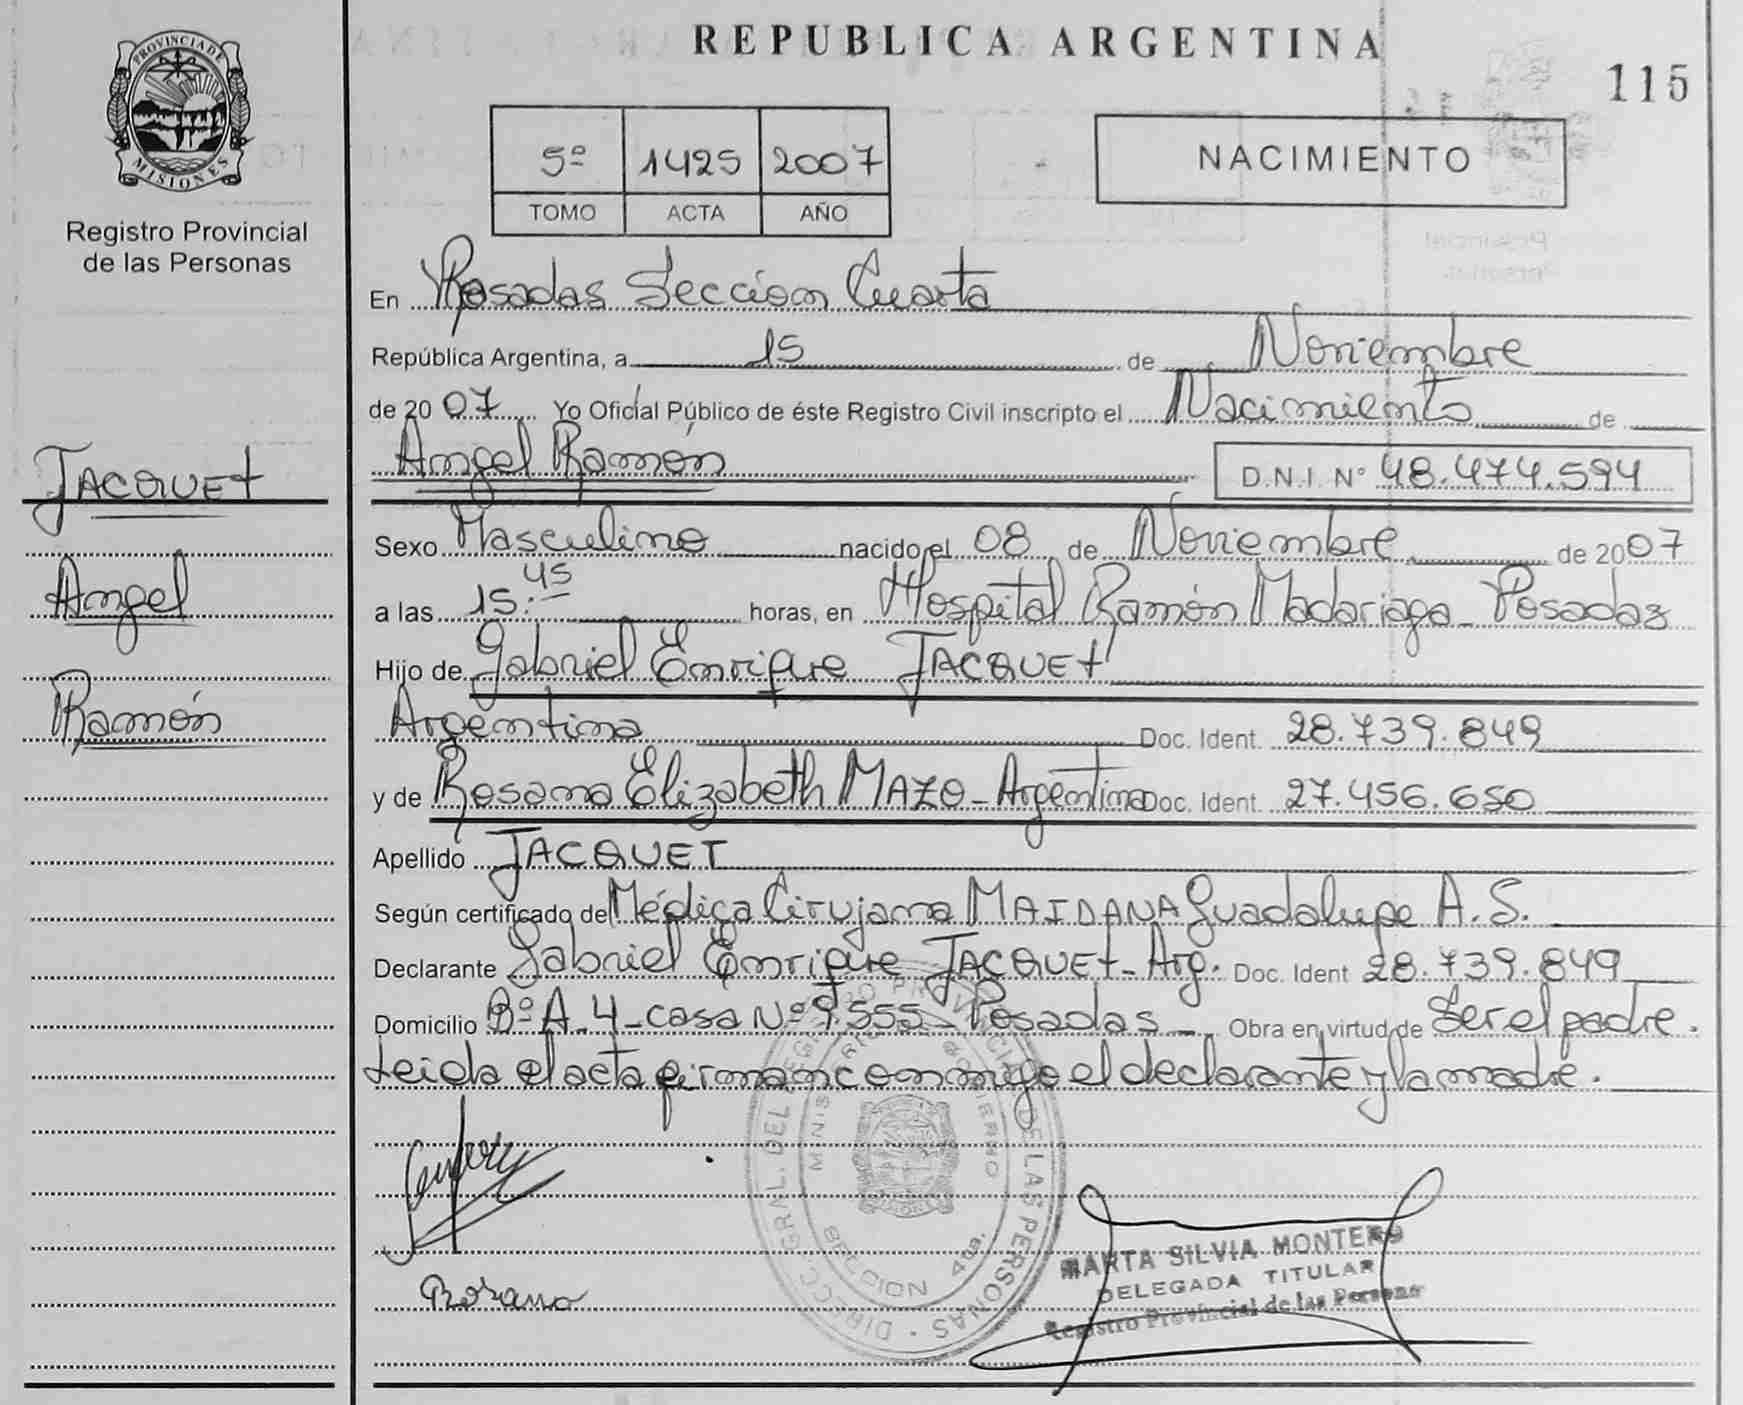 REPUBLICA ARGENTINA
115
PROVINCIA DE
MISIONES
Registro Provincial
de las Personas
5º 1425 2007
TOMO ACTA AÑO
NACIMIENTO
En Posadas Seccion Cuarta
República Argentina, a 15 de Noviembre
de 2007 Yo Oficial Público de éste Registro Civil inscripto el Nacimiento de
Angel Ramón D.N.I. Nº 48.474.594
JACQUET
Angel
Ramón
Sexo Masculino nacido el 08 de Noviembre de 2007
a las 15:45 horas, en Hospital Ramón Madariaga - Posadas
Hijo de Gabriel Enrique JACQUET
Argentina Doc. Ident. 28.739.849
y de Rosana Elizabeth MAZO - Argentina Doc. Ident. 27.456.650
Apellido JACQUET
Según certificado de Médica Cirujana MAIDANA Guadalupe A. S.
Declarante Gabriel Enrique JACQUET - Arg. Doc. Ident 28.739.849
Domicilio Bº A-4 - casa Nº 9.555 - Posadas - Obra en virtud de Ser el padre.
Leida el acta firman conmigo el declarante y la madre.
DIRECC. GRAL. DEL REGISTRO PROVINCIAL DE LAS PERSONAS
MINISTERIO DE GOBIERNO
SECCION 4ta.
MARTA SILVIA MONTERO
DELEGADA TITULAR
Registro Provincial de las Personas